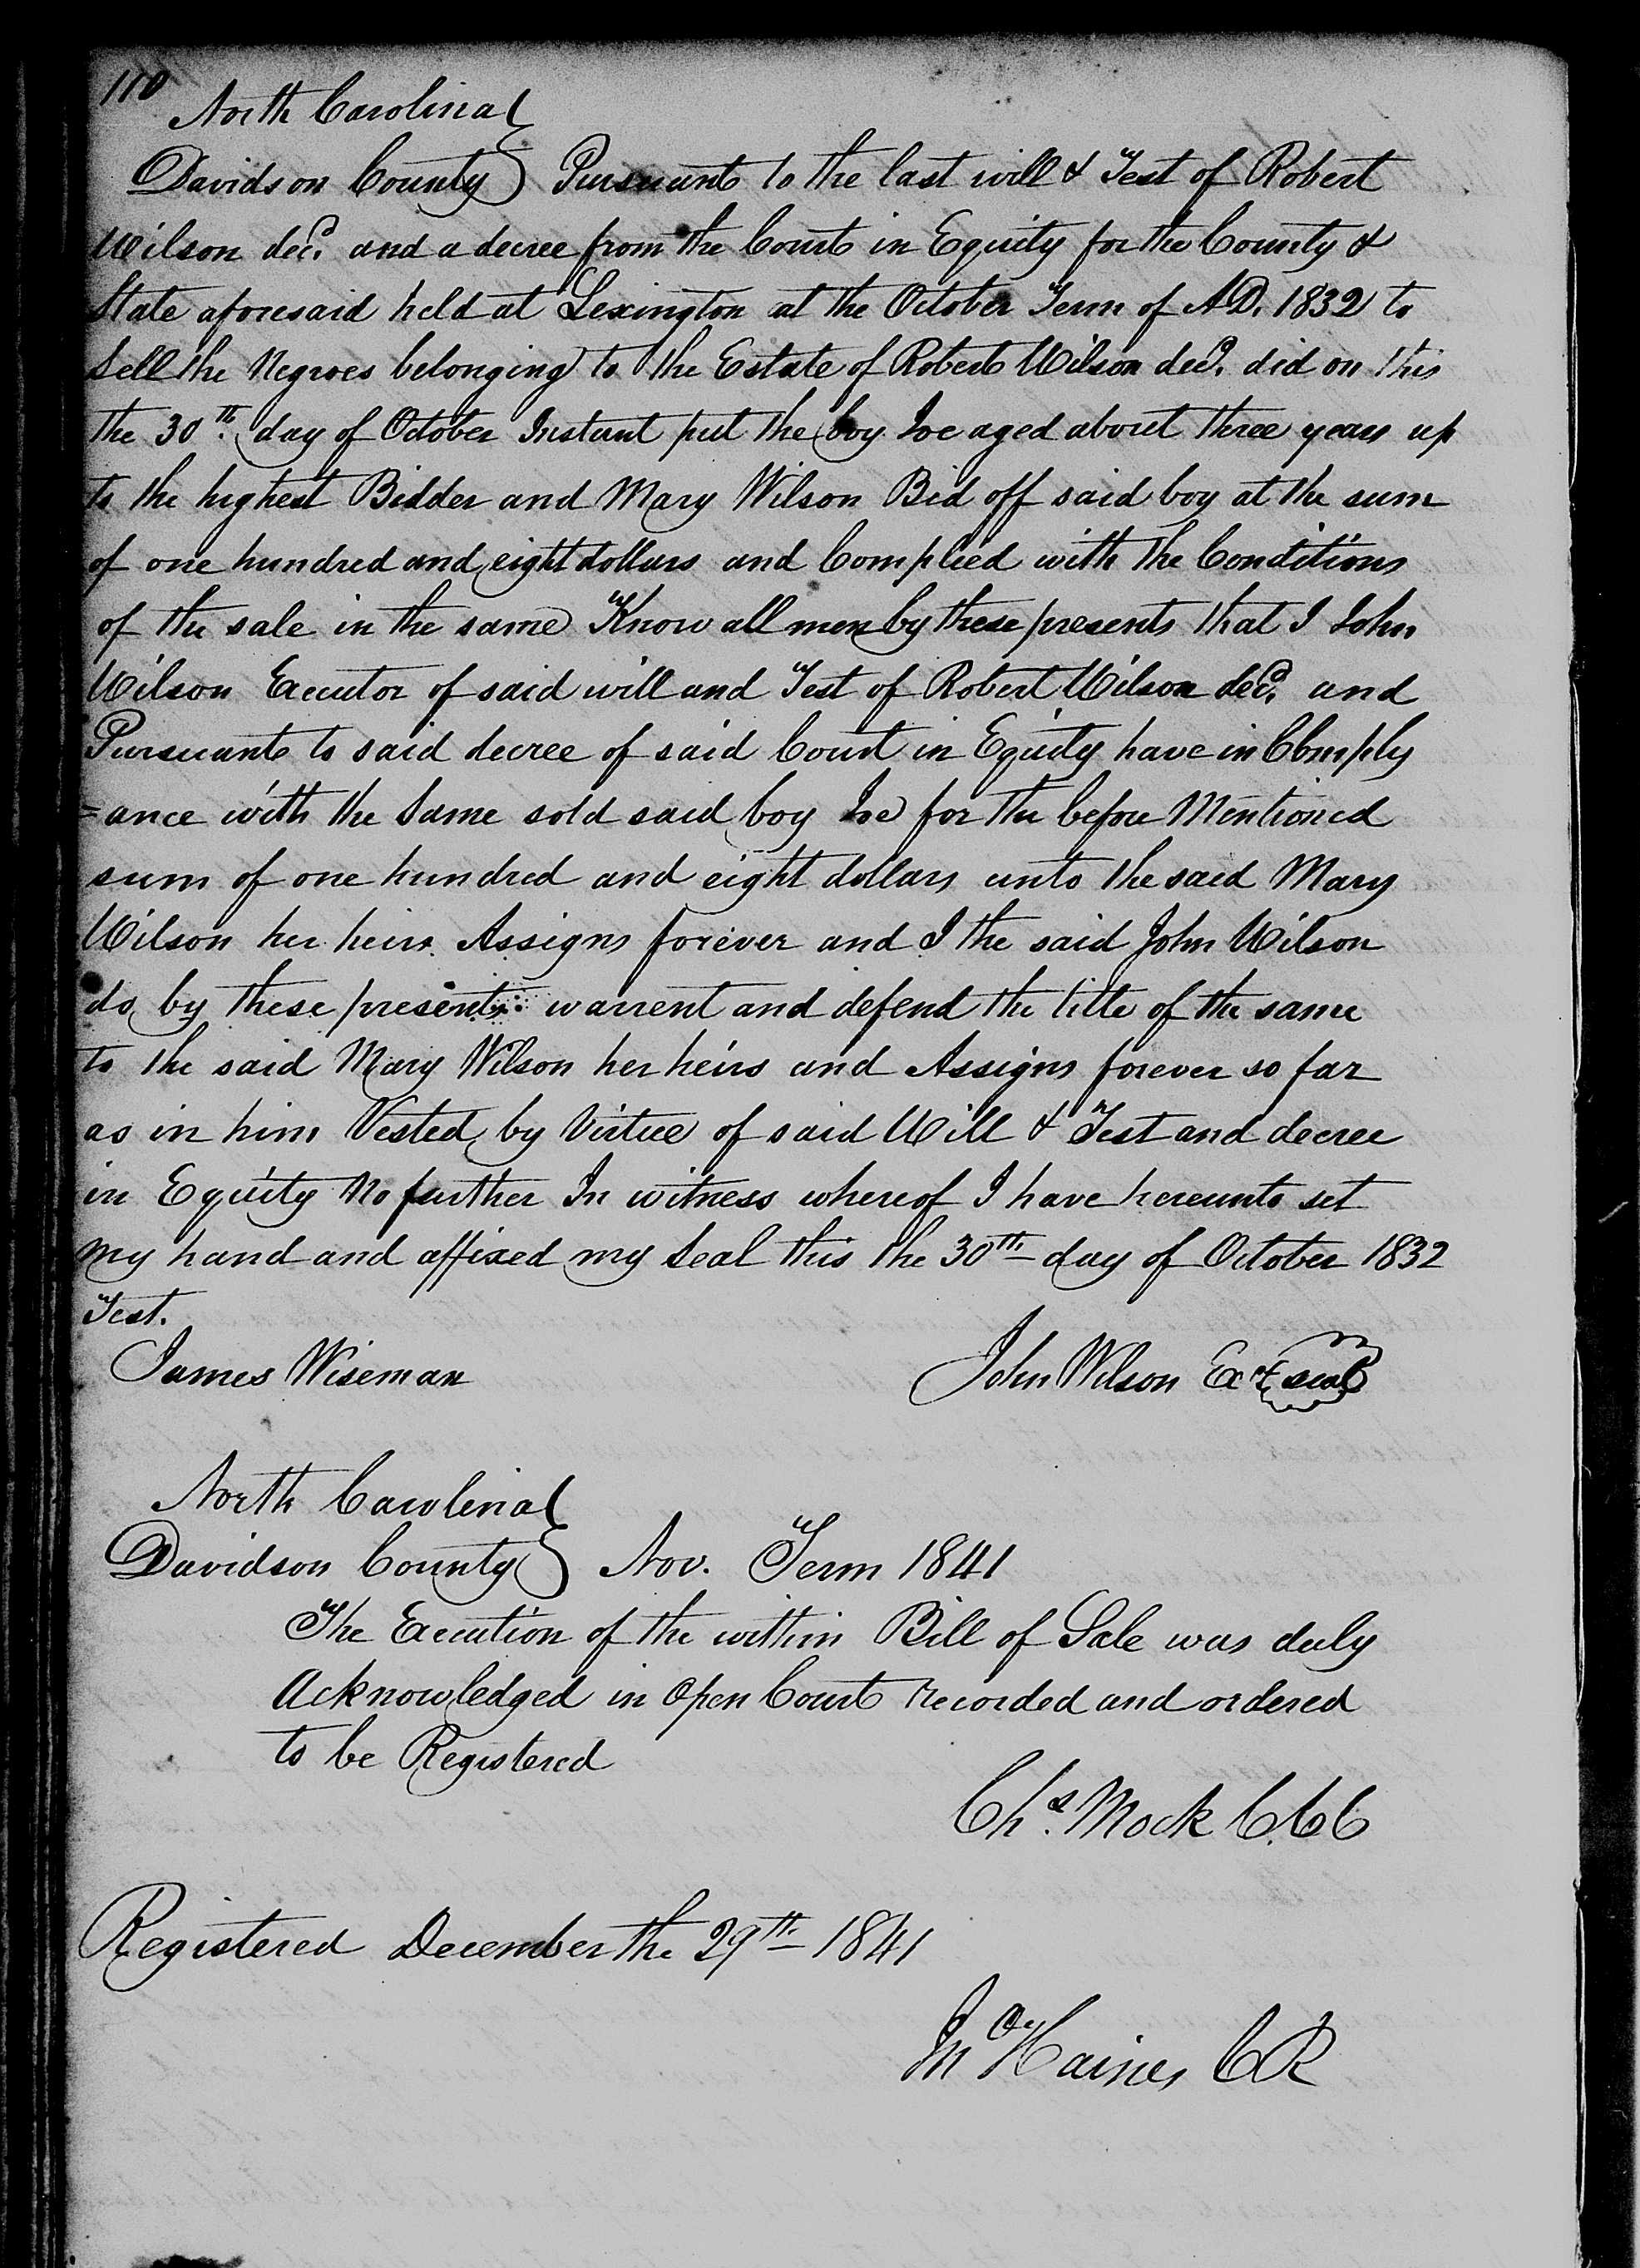 110
North Carolina
Davidson County Pursuant to the last will & Test of Robert
Wilson decd. and a decree from the Court in Equity for the County &
State aforesaid held at Lexington at the October Term of A.D. 1832 to
Sell the Negroes belonging to the Estate of Robert Wilson decd. did on this
the 30th. day of October Instant put the boy Joe aged about three years up
to the highest Bidder and Mary Wilson Bid off said boy at the sum
of one hundred and eight dollars and Complied with the Conditions
of the sale in the same Know all men by these presents that I John
Wilson Executor of said will and Test of Robert Wilson decd. and
Pursuant to said decree of said Court in Equity have in Comply
=ance with the Same sold said boy Joe for the before Mentioned
sum of one hundred and eight dollars unto the said Mary
Wilson her heirs Assigns forever and I the said John Wilson
do by these presents warrent and defend the title of the same
to the said Mary Wilson her heirs and Assigns forever so far
as in him Vested by Virtue of said Will & Test and decree
in Equity No further In witness whereof I have hereunto set
my hand and affixed my Seal this the 30th day of October 1832
Test.
James Wiseman John Wilson Exr seal
North Carolina
Davidson County Nov. Term 1841
The Execution of the within Bill of Sale was duly
Acknowledged in Open Court recorded and ordered
to be Registered
Chs. Mock C.C.C
Registered December the 29th 1841
Jno Haines CR